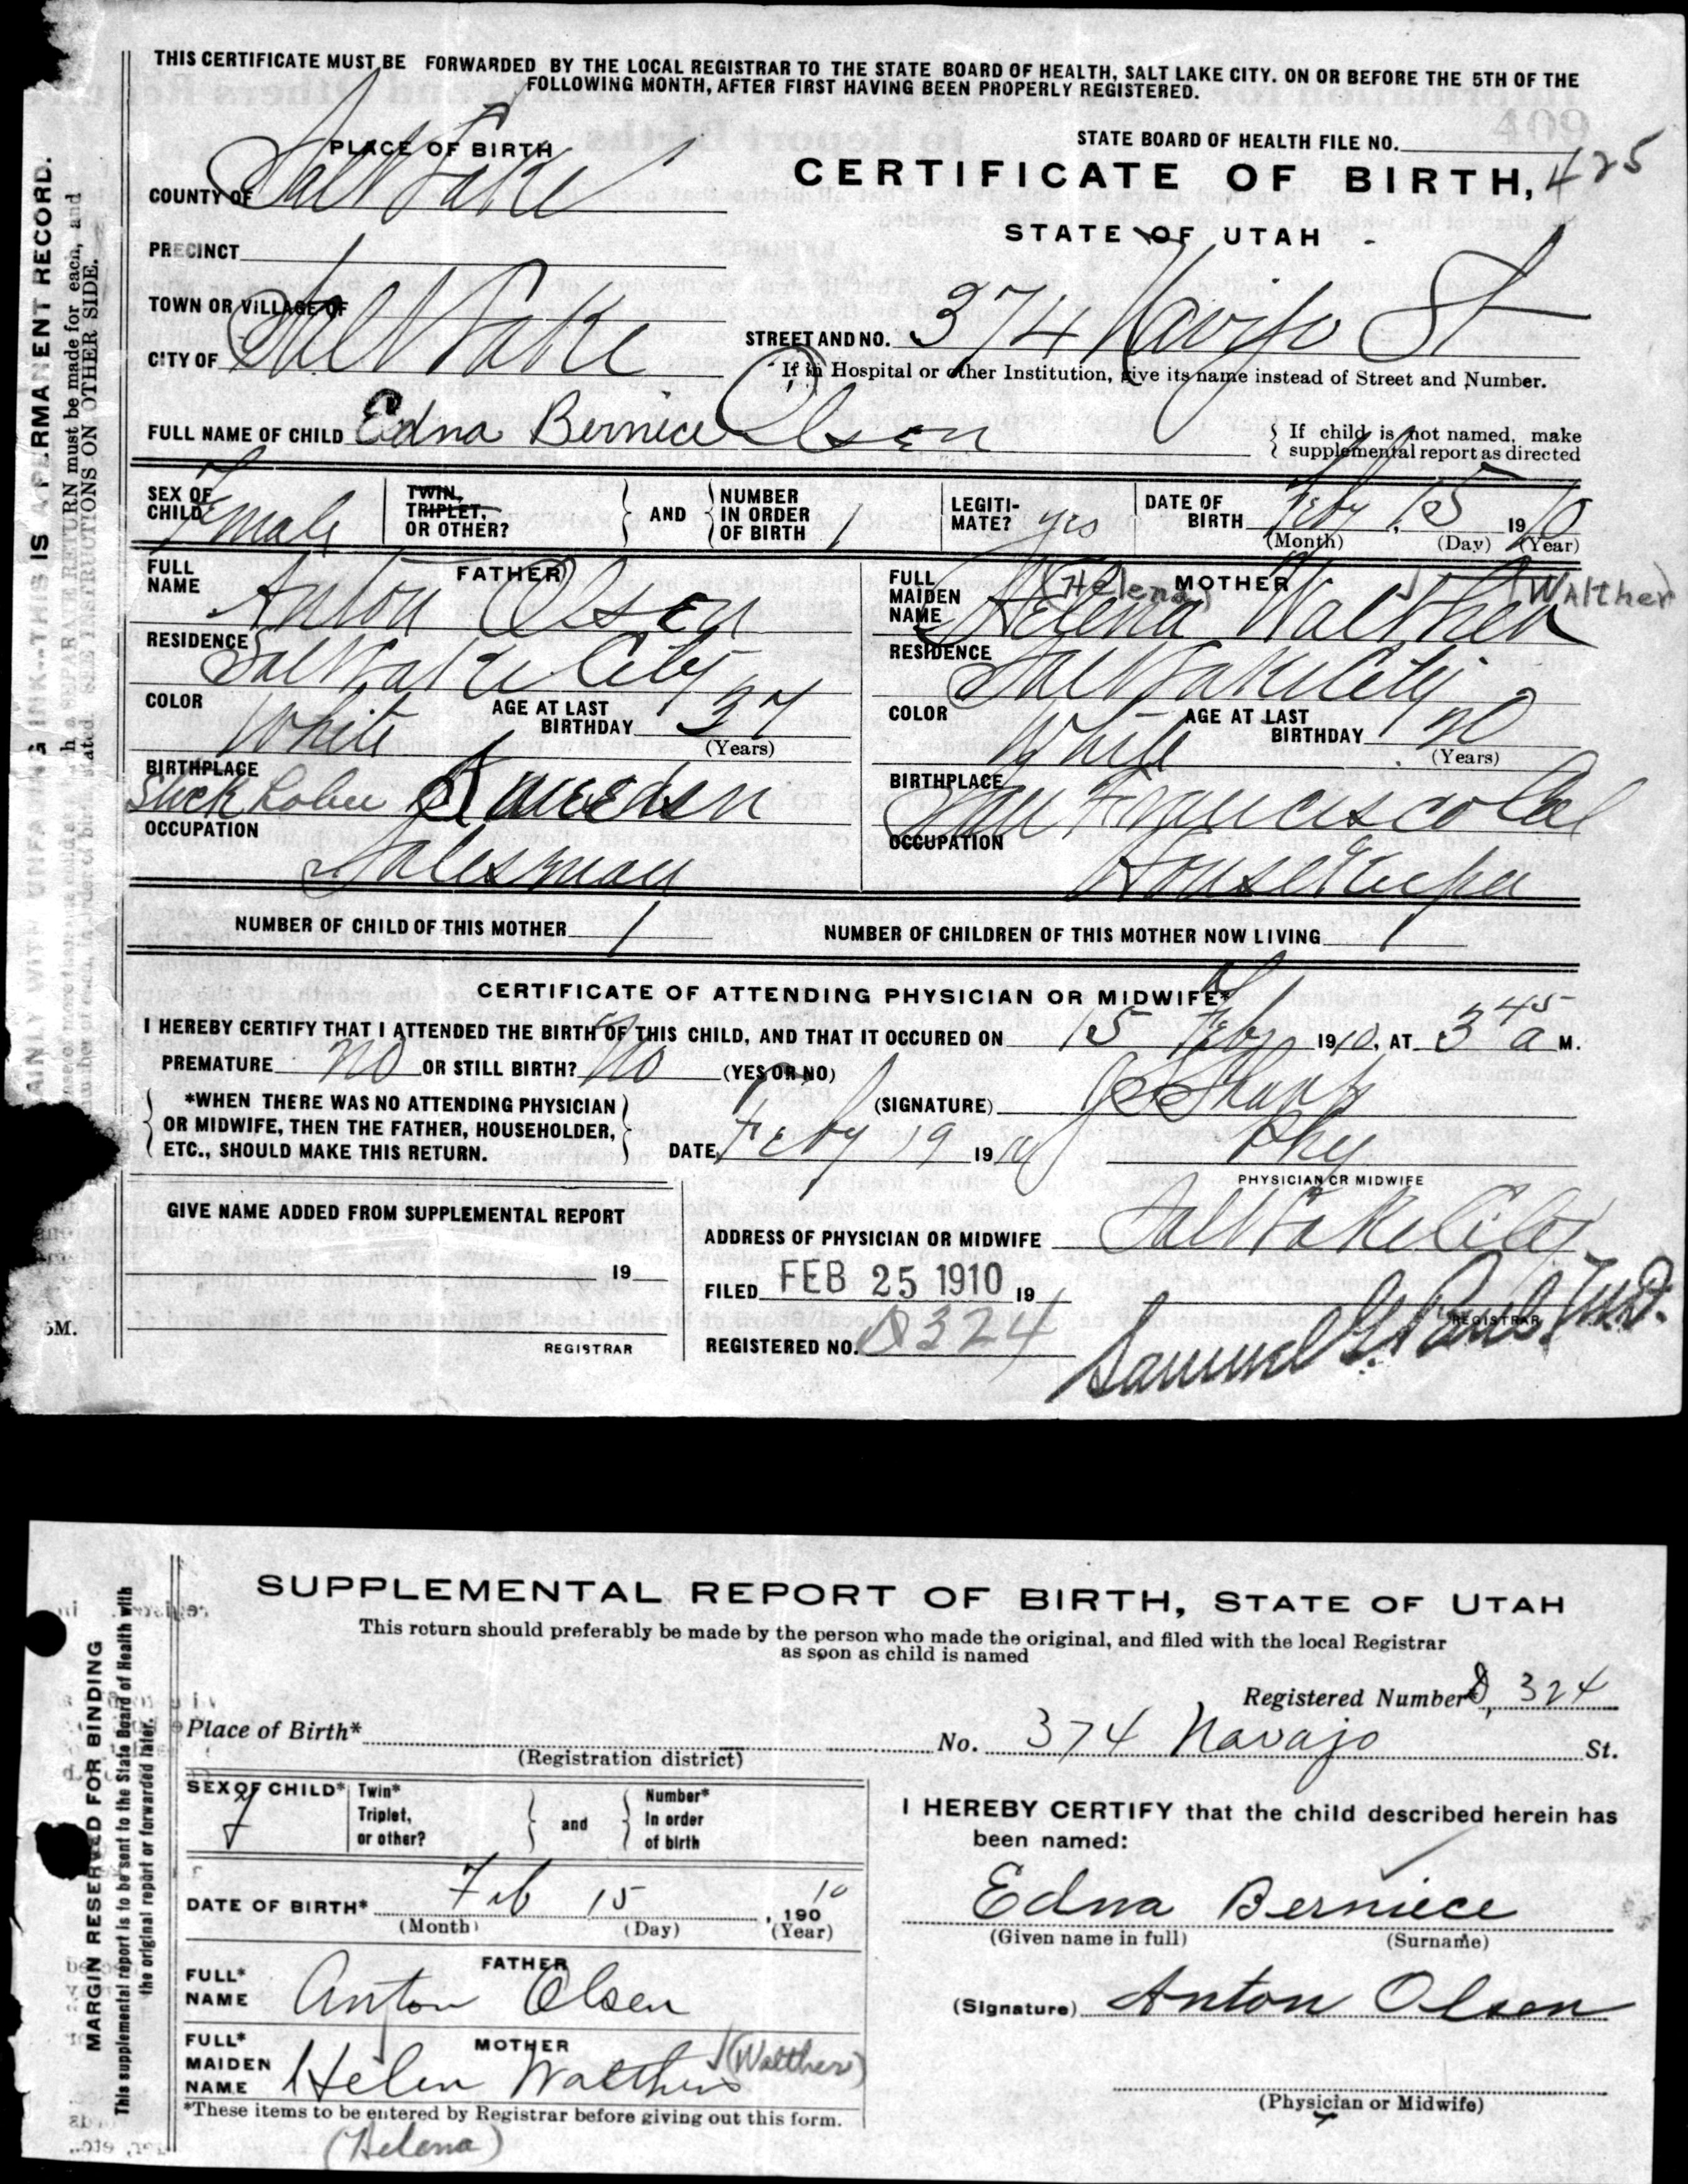 THIS CERTIFICATE MUST BE FORWARDED BY THE LOCAL REGISTRAR TO THE STATE BOARD OF HEALTH, SALT LAKE CITY. ON OR BEFORE THE 5TH OF THE
FOLLOWING MONTH, AFTER FIRST HAVING BEEN PROPERLY REGISTERED.
409
PLACE OF BIRTH
STATE BOARD OF HEALTH FILE NO.
COUNTY OF Salt Lake
CERTIFICATE OF BIRTH, 425
STATE OF UTAH
PRECINCT
TOWN OR VILLAGE OF
CITY OF Salt Lake
STREET AND NO. 374 Navijo St
If in Hospital or other Institution, give its name instead of Street and Number.
FULL NAME OF CHILD Edna Berniece Olsen
If child is not named, make
supplemental report as directed
SEX OF CHILD Female
TWIN, TRIPLET, OR OTHER?
AND
NUMBER IN ORDER OF BIRTH 1
LEGITI-MATE? yes
DATE OF BIRTH Feby 15 1910
(Month) (Day) (Year)
FATHER
FULL NAME Anton Olsen
RESIDENCE Salt Lake City
COLOR White
AGE AT LAST BIRTHDAY 37
(Years)
BIRTHPLACE Sweeden
OCCUPATION Salesman
MOTHER
FULL MAIDEN NAME Helena Walther
(Helena) (Walther)
RESIDENCE Salt Lake City
COLOR White
AGE AT LAST BIRTHDAY 20
(Years)
BIRTHPLACE San Francisco Cal
OCCUPATION Housekeeper
NUMBER OF CHILD OF THIS MOTHER 1
NUMBER OF CHILDREN OF THIS MOTHER NOW LIVING 1
CERTIFICATE OF ATTENDING PHYSICIAN OR MIDWIFE*
I HEREBY CERTIFY THAT I ATTENDED THE BIRTH OF THIS CHILD, AND THAT IT OCCURED ON 15 Feby 1910, AT 3 45 a M.
PREMATURE no OR STILL BIRTH? no (YES OR NO)
*WHEN THERE WAS NO ATTENDING PHYSICIAN
OR MIDWIFE, THEN THE FATHER, HOUSEHOLDER,
ETC., SHOULD MAKE THIS RETURN.
(SIGNATURE)
DATE, Feby 19 1910
Phy
PHYSICIAN OR MIDWIFE
GIVE NAME ADDED FROM SUPPLEMENTAL REPORT
19
REGISTRAR
ADDRESS OF PHYSICIAN OR MIDWIFE Salt Lake City
FILED FEB 25 1910 19
REGISTRAR
REGISTERED NO. 324
Samuel G. Paul M.D.
5M.
THIS IS A PERMANENT RECORD.
RETURN must be made for each, and
SEE INSTRUCTIONS ON OTHER SIDE.
SUPPLEMENTAL REPORT OF BIRTH, STATE OF UTAH
This return should preferably be made by the person who made the original, and filed with the local Registrar
as soon as child is named
Registered Number 324
Place of Birth*
(Registration district)
No. 374 Navajo St.
SEX OF CHILD* f
Twin* Triplet, or other?
and
Number* In order of birth
DATE OF BIRTH* Feb 15, 190 10
(Month) (Day) (Year)
FATHER
FULL* NAME Anton Olsen
MOTHER
FULL* MAIDEN NAME Helen Walthers (Walther)
*These items to be entered by Registrar before giving out this form.
(Helena)
I HEREBY CERTIFY that the child described herein has
been named:
Edna Berniece
(Given name in full) (Surname)
(Signature) Anton Olsen
(Physician or Midwife)
MARGIN RESERVED FOR BINDING
This supplemental report is to be sent to the State Board of Health with
the original report or forwarded later.